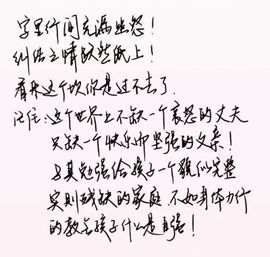 字里行间充满幽怨！
纠结之情跃然纸上！
看来这个坎你是过不去了.
记住:这个世界上不缺一个哀怨的丈夫
只缺一个快乐而坚强的父亲！
与其勉强给孩子一个貌似完整
实则残缺的家庭 不如身体力行
的教会孩子什么是自强！